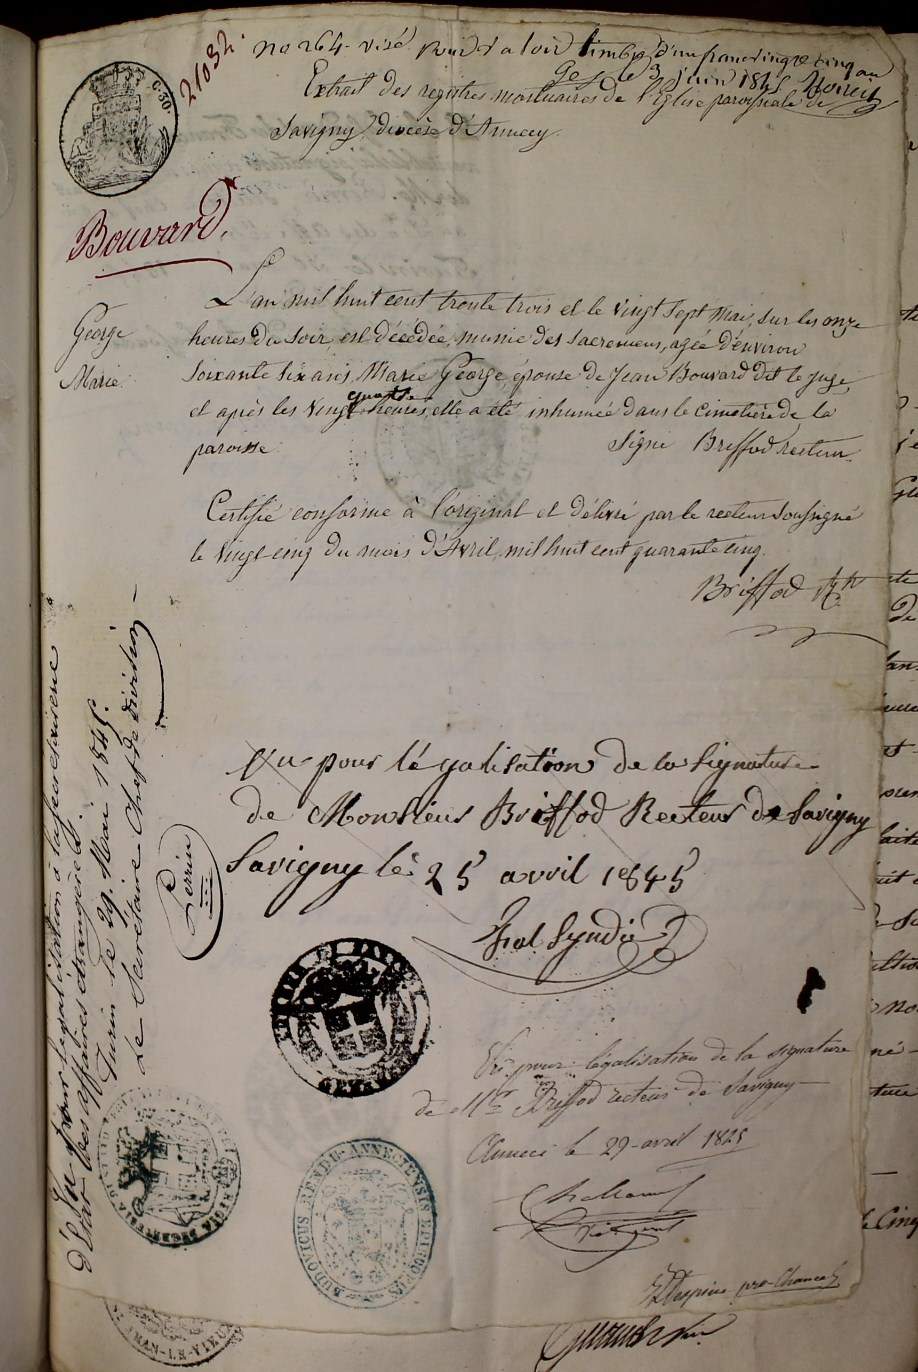 21032.
C. 30.
no 264. visé pour valoir timbre d'un franc vingt cinq
Gex le 3 juin 1845
Extrait des registres mortuaires de l'Eglise paroissiale de
Savigny, diocèse d'Annecy.
Bouvard.
George
Marie.
L'an mil huit cent trente trois et le vingt sept Mai, sur les onze
heures du soir, est décédée, munie des sacremens, agée d'environ
soixante six ans, Marie George, épouse de Jean Bouvard dit le juge,
quatre
et après les vingt heures, elle a été inhumée dans le cimetière de la
paroisse. Signé Briffod recteur.
Certifié conforme à l'original et délivré par le recteur soussigné
le vingt cinq du mois d'Avril, mil huit cent quarante cinq.
Briffod
Vu pour légalisation de la signature
de Monsieur Briffod Recteur de Savigny
Savigny le 25 avril 1845
Syndic
Vu pour légalisation de la signature
de Mr Briffod recteur de Savigny
Annecy le 29 avril 1845
pro-Chancel
Vu pour légalisation à la secrétairerie
d'Etat des affaires étrangères.
Turin le 29. Mai 1845.
Le Secrétaire Chef de division
Perrin
LUDOVICUS RENDU ANNECIENSIS EPISCOPUS
REGIA SEGRETERIA DI STATO